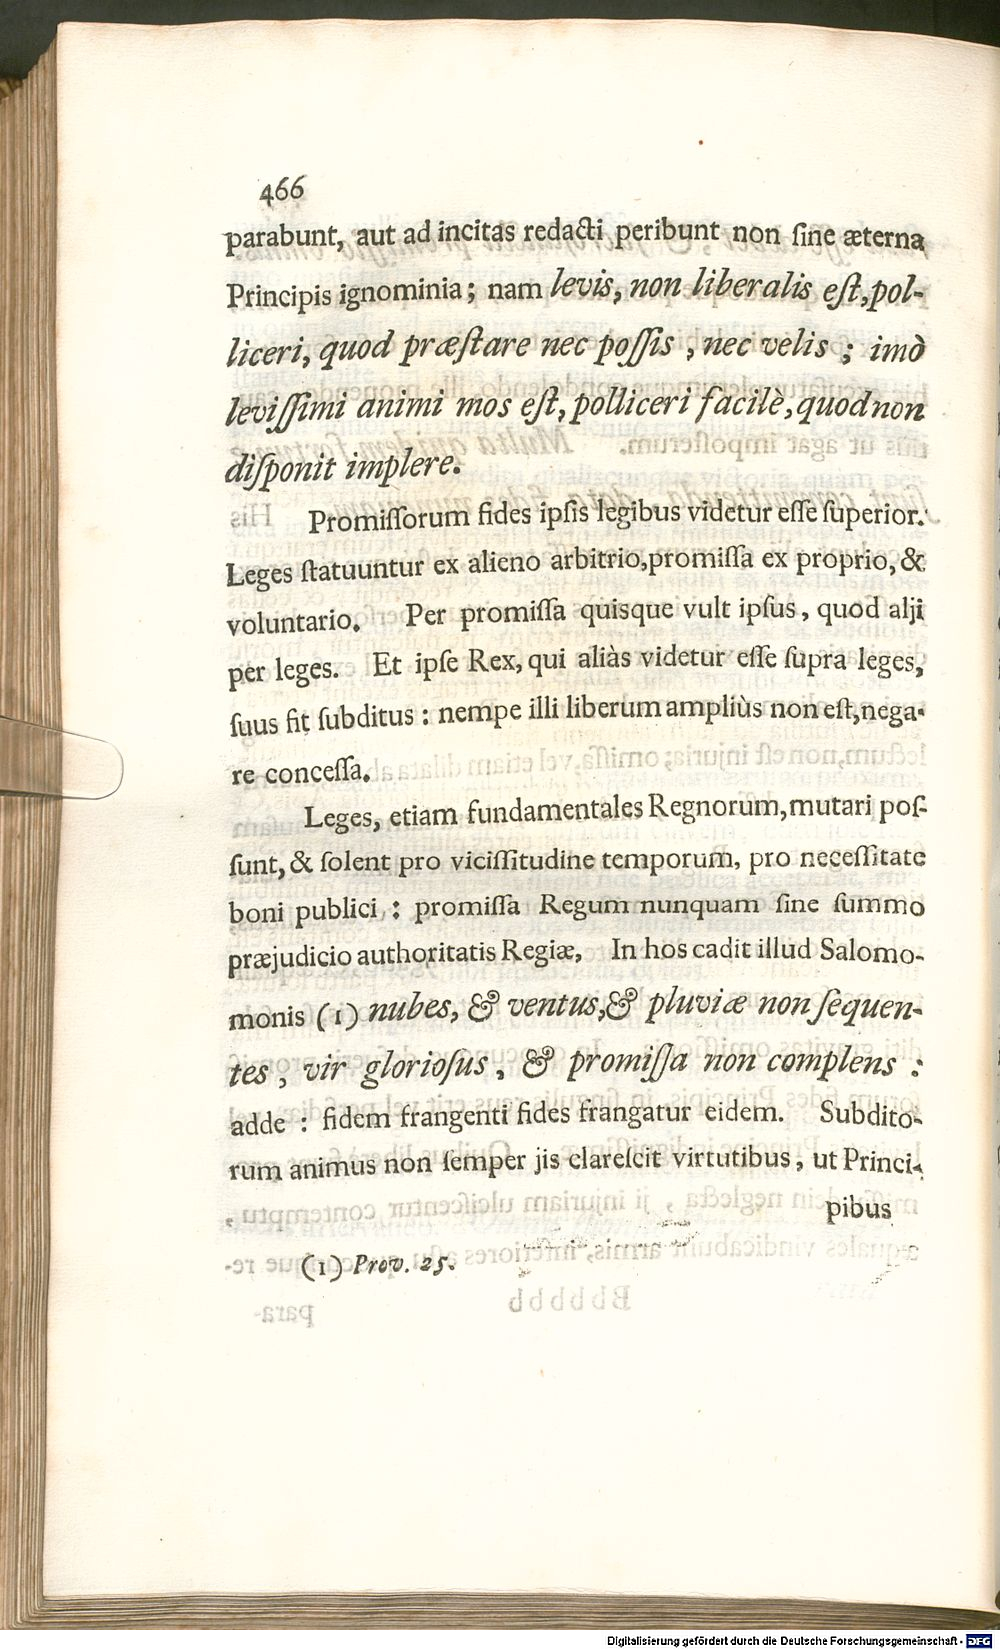 466
parabunt, aut ad incitas redacti peribunt non ſine æterna
Principis ignominia; nam levis, non liberalis eſt, pol-
liceri, quod præſtare nec poſſis, nec velis; imò
leviſſimi animi mos eſt, polliceri facilè, quod non
diſponit implere.
Promiſſorum fides ipſis legibus videtur eſſe ſuperior.
Leges ſtatuuntur ex alieno arbitrio, promiſſa ex proprio, &
voluntario. Per promiſſa quisque vult ipſus, quod alji
per leges. Et ipſe Rex, qui aliàs videtur eſſe ſupra leges,
ſuus fit ſubditus: nempe illi liberum ampliùs non eſt, nega-
re conceſſa.
Leges, etiam fundamentales Regnorum, mutari poſ-
ſunt, & ſolent pro viciſſitudine temporum, pro neceſſitate
boni publici: promiſſa Regum nunquam ſine ſummo
præjudicio authoritatis Regiæ, In hos cadit illud Salomo-
monis (1) nubes, & ventus, & pluviæ non ſequen-
tes, vir glorioſus, & promiſſa non complens:
adde: fidem frangenti fides frangatur eidem. Subdito-
rum animus non ſemper jis clareſcit virtutibus, ut Princi-
pibus
(1) Prov. 25.
Digitalisierung gefördert durch die Deutsche Forschungsgemeinschaft - DFG